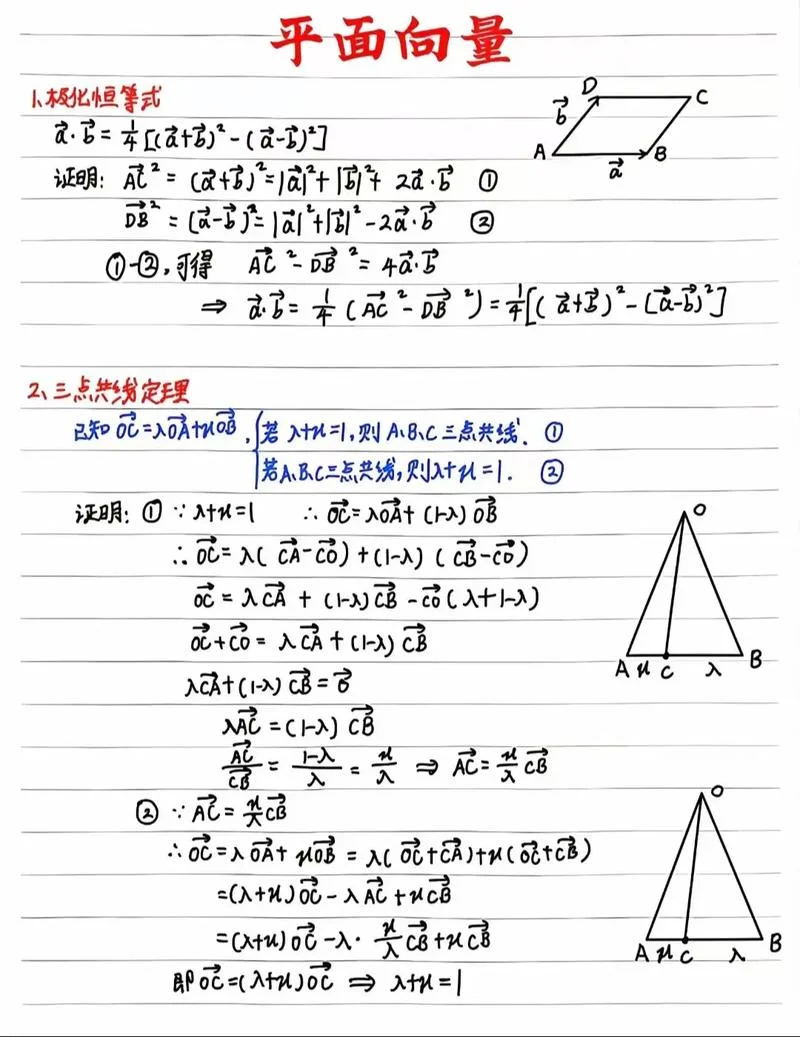 平面向量
1、极化恒等式
D C
b⃗
A a⃗ B
a⃗·b⃗=1/4[(a⃗+b⃗)²-(a⃗-b⃗)²]
证明: AC⃗²=(a⃗+b⃗)²=|a⃗|²+|b⃗|²+2a⃗·b⃗ ①
DB⃗²=(a⃗-b⃗)²=|a⃗|²+|b⃗|²-2a⃗·b⃗ ②
①-②,可得 AC⃗²-DB⃗²=4a⃗·b⃗
⇒ a⃗·b⃗=1/4(AC⃗²-DB⃗²)=1/4[(a⃗+b⃗)²-(a⃗-b⃗)²]
2、三点共线定理
已知OC⃗=λOA⃗+μOB⃗,{若λ+μ=1,则A、B、C三点共线. ①
若A、B、C三点共线,则λ+μ=1. ②
证明: ①∵λ+μ=1 ∴OC⃗=λOA⃗+(1-λ)OB⃗
∴OC⃗=λ(CA⃗-CO⃗)+(1-λ)(CB⃗-CO⃗)
OC⃗=λCA⃗+(1-λ)CB⃗-CO⃗(λ+1-λ)
OC⃗+CO⃗=λCA⃗+(1-λ)CB⃗
λCA⃗+(1-λ)CB⃗=0⃗
λAC⃗=(1-λ)CB⃗
AC⃗/CB⃗=(1-λ)/λ=μ/λ ⇒ AC⃗=μ/λCB⃗
O
A μ C λ B
②∵AC⃗=μ/λCB⃗
∴OC⃗=λOA⃗+μOB⃗=λ(OC⃗+CA⃗)+μ(OC⃗+CB⃗)
=(λ+μ)OC⃗-λAC⃗+μCB⃗
=(λ+μ)OC⃗-λ·μ/λCB⃗+μCB⃗
即OC⃗=(λ+μ)OC⃗ ⇒ λ+μ=1
O
A μ C λ B